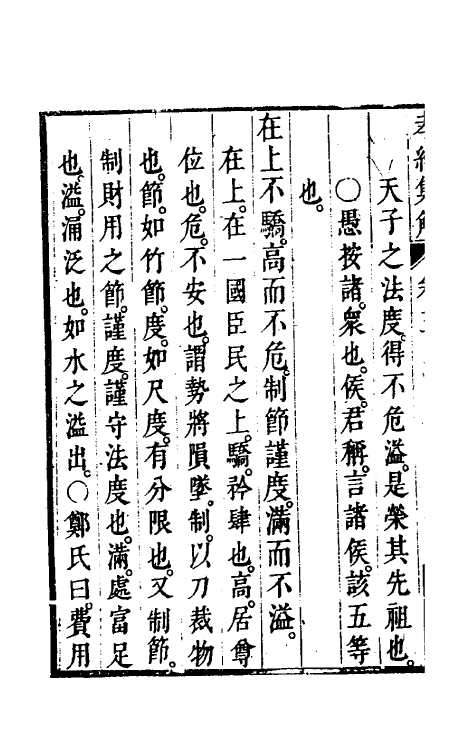 孝經集解
天子之法度。得不危溢。是榮其先祖也。
○愚按諸。衆也。侯。君稱。言諸侯。該五等
也。
在上不驕。高而不危。制節謹度。滿而不溢。
在上。在一國臣民之上。驕。矜肆也。高。居尊
位也。危。不安也。謂勢將隕墜。制。以刀裁物
也。節。如竹節。度。如尺度。有分限也。又制節。
制財用之節。謹度。謹守法度也。滿。處富足
也。溢。涌泛也。如水之溢出。○鄭氏曰。費用